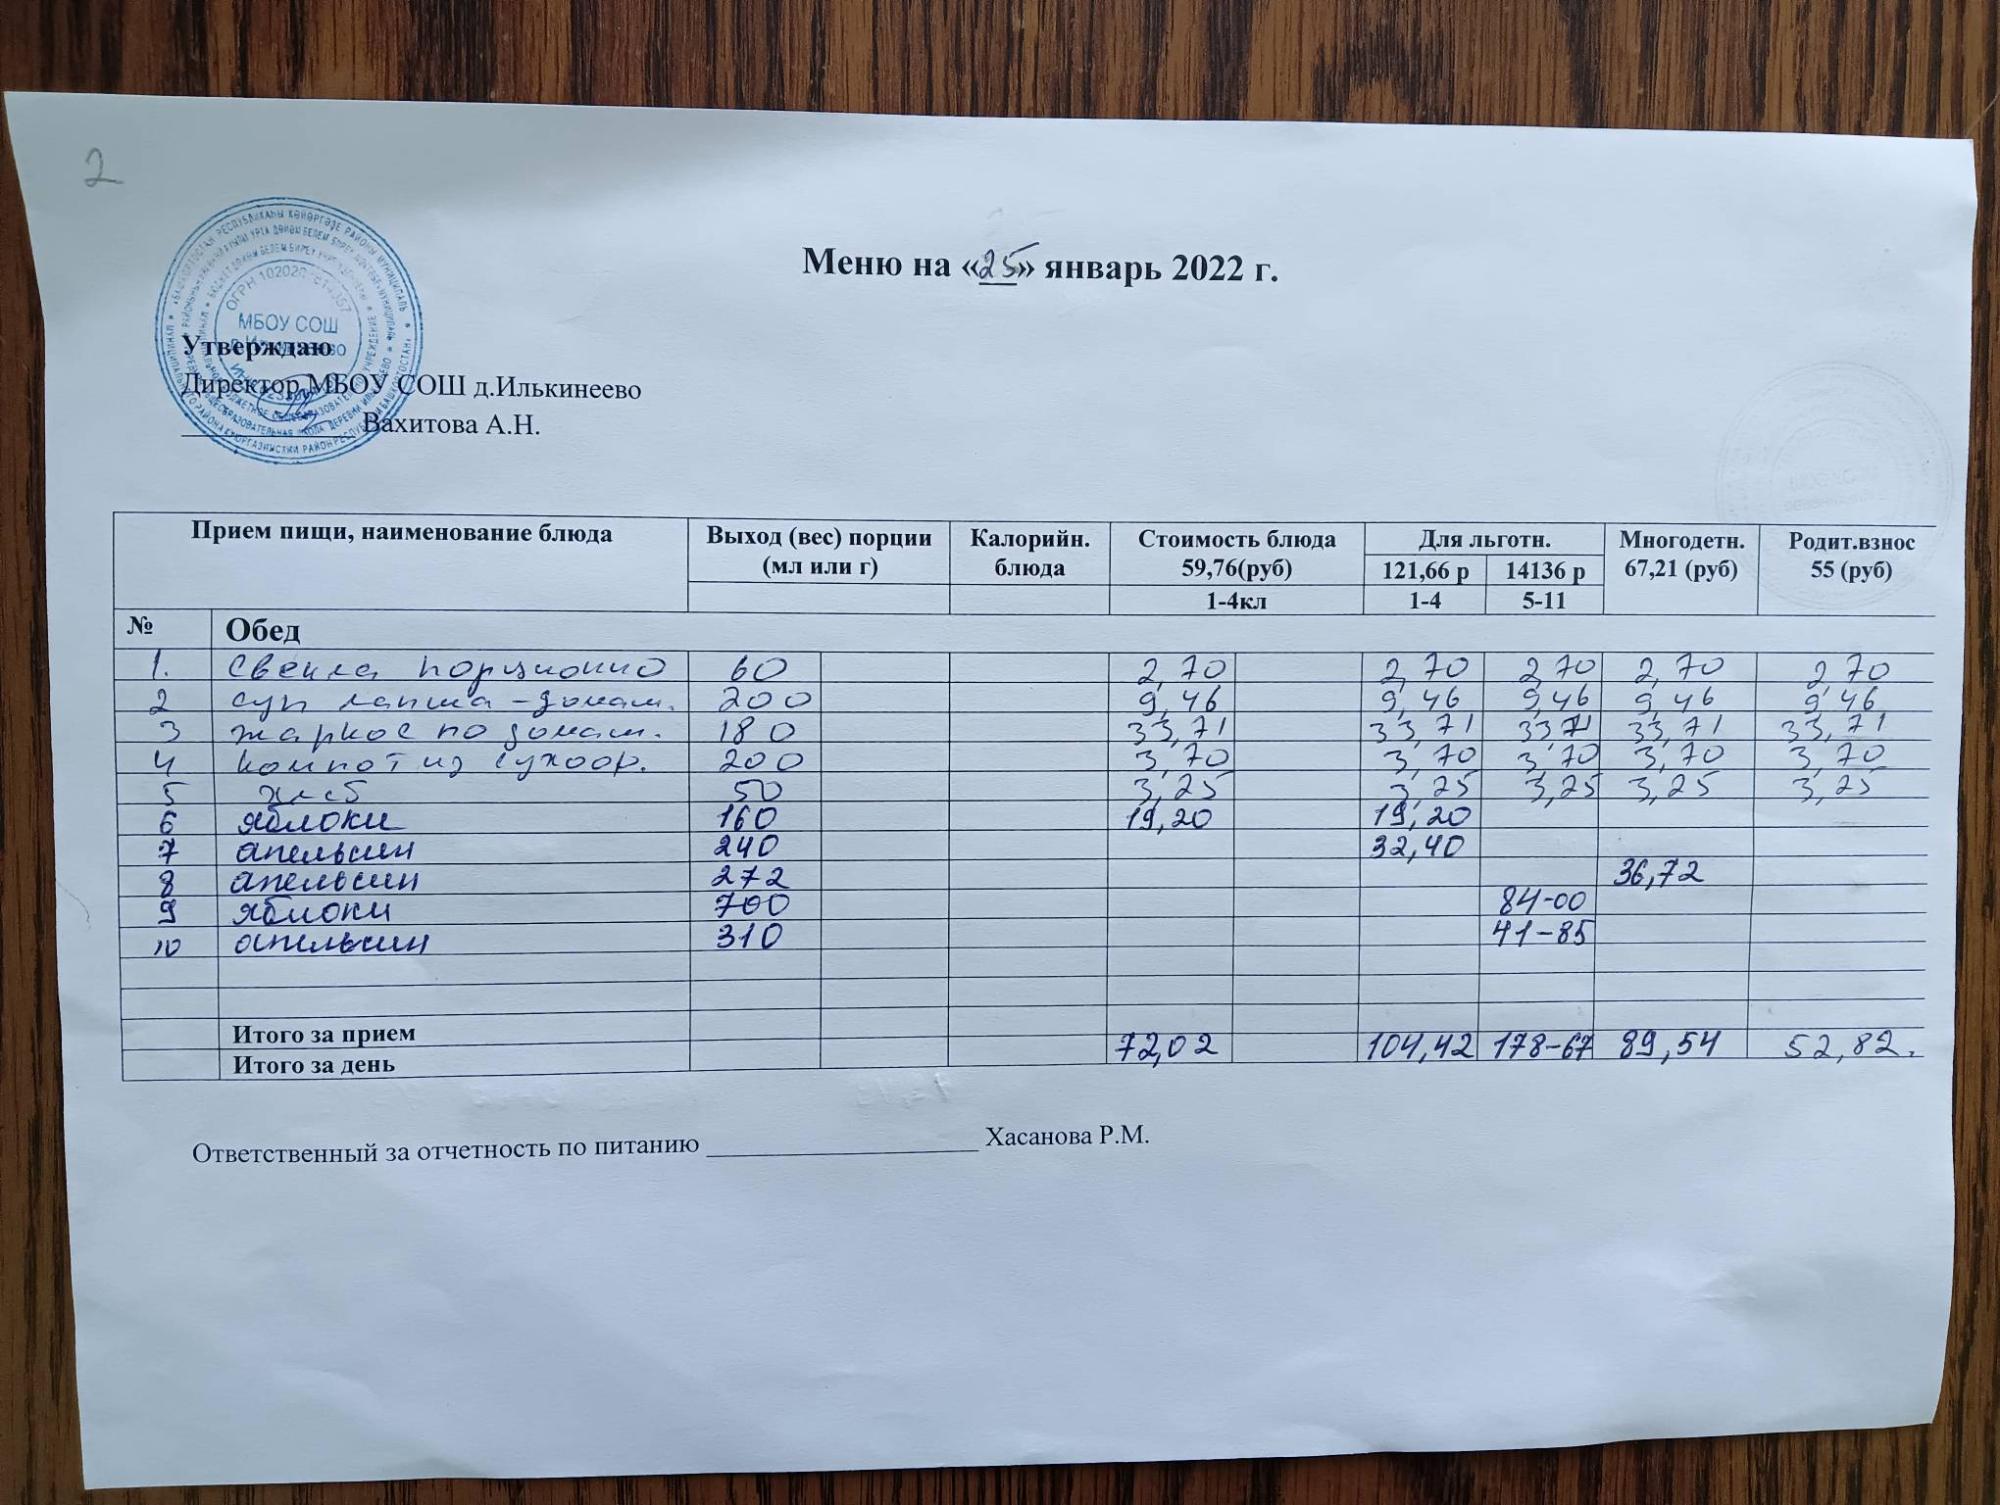 2
Меню на «25» январь 2022 г.
МБОУ СОШ
Утверждаю
Директор МБОУ СОШ д.Илькинеево
Вахитова А.Н.
Прием пищи, наименование блюда Выход (вес) порции (мл или г) Калорийн. блюда Стоимость блюда 59,76(руб) Для льготн. Многодетн. 67,21 (руб) Родит.взнос 55 (руб)
121,66 р 14136 р
1-4кл 1-4 5-11
№ Обед
1. Свекла порционно 60 2,70 2,70 2,70 2,70 2,70
2 суп лапша-домаш. 200 9,46 9,46 9,46 9,46 9,46
3 жаркое по домаш. 180 33,71 33,71 33,71 33,71 33,71
4 компот из сухофр. 200 3,70 3,70 3,70 3,70 3,70
5 хлеб 50 3,25 3,25 3,25 3,25 3,25
6 яблоки 160 19,20 19,20
7 апельсин 240 32,40
8 апельсин 272 36,72
9 яблоки 700 84-00
10 апельсин 310 41-85
Итого за прием 72,02 104,42 178-67 89,54 52,82.
Итого за день
Ответственный за отчетность по питанию Хасанова Р.М.